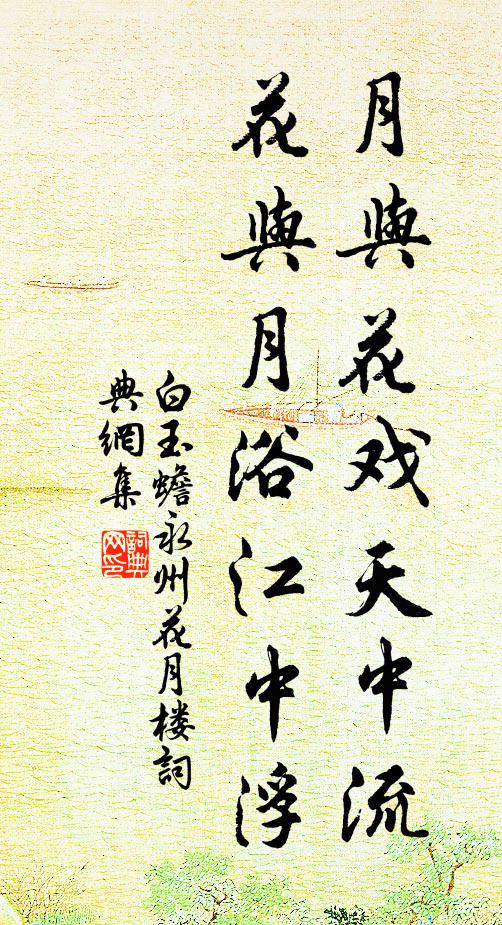 月與花戏天中流
花與月浴江中浮
白玉蟾永州花月楼詞
典網集
詞典
网印